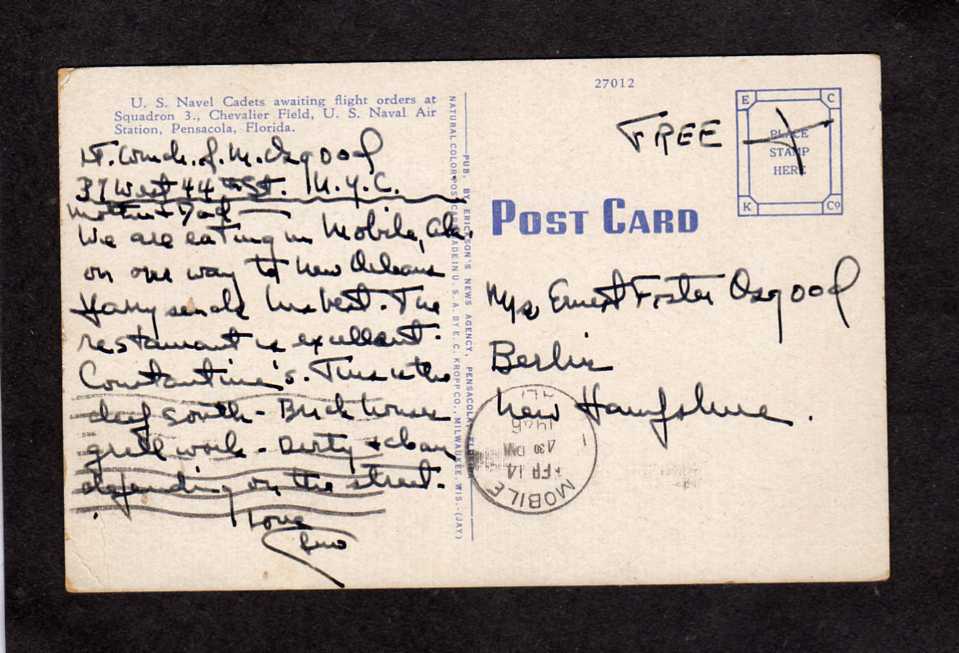 27012
U. S. Navel Cadets awaiting flight orders at
Squadron 3., Chevalier Field, U. S. Naval Air
Station, Pensacola, Florida.
Osgood
37 West 44th St. N.Y.C.
Mother + Dad
We are eating in Mobile, Ala.
on our way to New Orleans
Harry sends his best. The
restaurant is excellent.
Constantine's. This is the
deep south - Brick houses
grill work - Dirty + clean
depending on the street.
Love
NATURAL COLOR POST CARD MADE IN U. S. A. BY E. C. KROPP CO., MILWAUKEE, WIS.-(JAY)
PUB. BY ERICKSON'S NEWS AGENCY, PENSACOLA, FLORIDA
FREE
E C
PLACE
STAMP
HERE
K Co
POST CARD
Mrs Ernest Foster Osgood
Berlin
New Hampshire.
MOBILE
FEB 14
1946